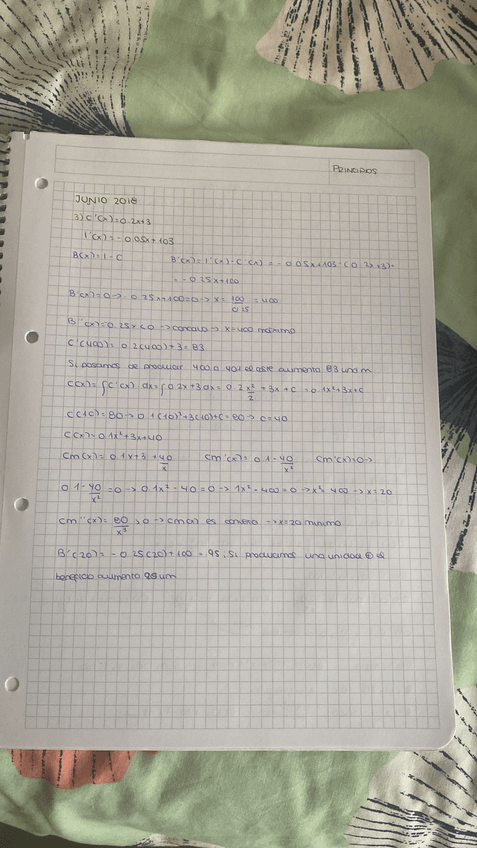 PRINCIPIOS
JUNIO 2018
3) C'(x)=0.2x+3
I'(x)=-0.05x+103
B(x)=I-C B'(x)=I'(x)-C'(x)=-0.05x+103-(0.2x+3)=
=-0.25x+100
B'(x)=0→-0.25x+100=0→x=100/0.25=400
B''(x)=-0.25<0→concavo→x=400 máximo
C'(400)=0.2(400)+3=83
Si pasamos de producir 400 a 401 el coste aumenta 83 u.m
C(x)=∫C'(x) dx=∫0.2x+3 dx=0.2x²/2+3x+C=0.1x²+3x+C
C(10)=80→0.1(10)²+3(10)+C=80→C=40
C(x)=0.1x²+3x+40
Cm(x)=0.1x+3+40/x Cm'(x)=0.1-40/x² Cm'(x)=0→
0.1-40/x²=0→0.1x²-40=0→1x²-400=0→x²=400→x=20
Cm''(x)=80/x³>0→Cm(x) es convexa→x=20 mínimo
B'(20)=-0.25(20)+100=95. Si producimos una unidad el
beneficio aumenta um